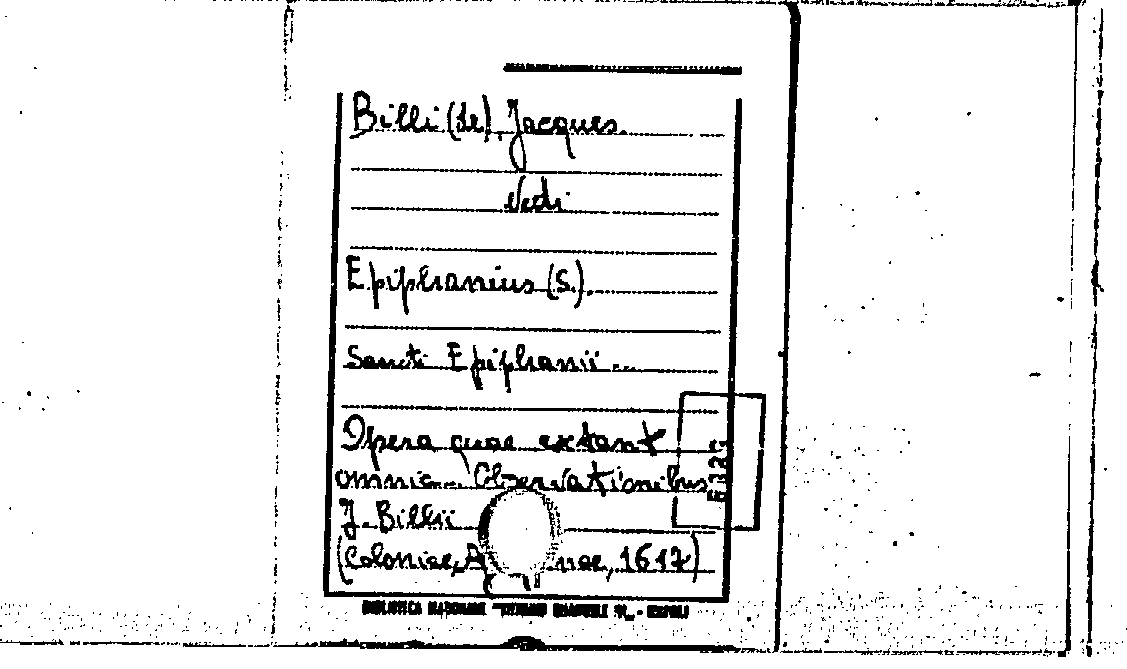 Billi (de), Jacques.
Vedi
Epiphanius (S.).
Sancti Epiphanii...
Opera quae extant
omnia... Observationibus
J. Billii
(Coloniae, A nae, 1617)
BIBLIOTECA NAZIONALE "VITTORIO EMANUELE III" - NAPOLI